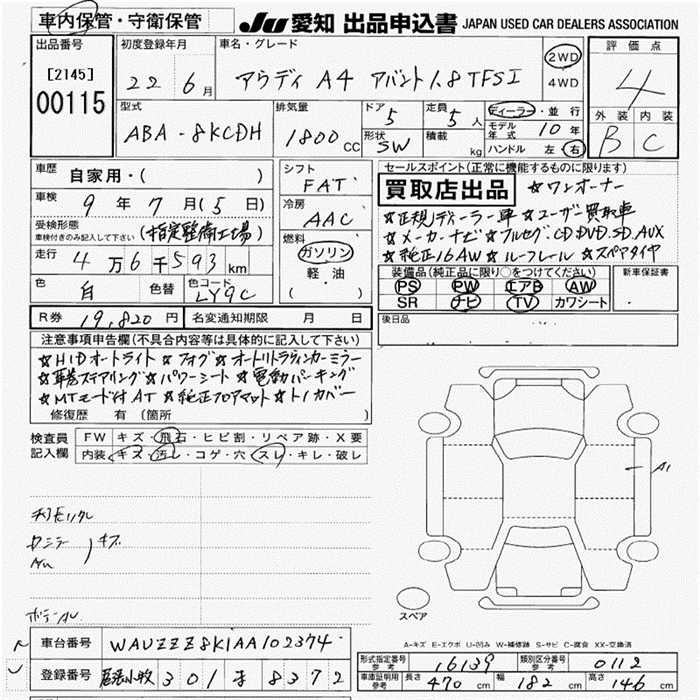 車内保管・守衛保管
JU 愛知 出品申込書 JAPAN USED CAR DEALERS ASSOCIATION
出品番号
[2145]
00115
初度登録年月
22 6月
車名・グレード
アウディ A4 アバント1.8TFSI
2WD
4WD
評価点
4
外装 内装
B C
型式
ABA-8KCDH
排気量
1800cc
ドア
5
形状
SW
定員
5人
積載
kg
ディーラー・並行
モデル年式 10年
ハンドル 左・右
車歴
自家用・( )
車検
9年7月(5日)
受検形態
車検付きのみ記入して下さい
(指定整備工場)
走行
4万6千593km
色
白
色替
色コード
LY9C
シフト
FAT
冷房
AAC
燃料
ガソリン
軽油
( )
セールスポイント(正常に機能するものに限ります)
買取店出品
☆ワンオーナー
☆正規ディーラー車 ☆ユーザー買取車
☆メーカーナビ ☆フルセグ.CD.DVD.SD.AUX
☆純正16AW ☆ルーフレール ☆スペアタイヤ
装備品(純正品に限り○をつけてください)
PS PW エアB AW
SR ナビ TV カワシート
新車保証書
R券 19,820円
名変通知期限 月 日
後日品
注意事項申告欄(不具合内容等は具体的に記入して下さい)
☆HIDオートライト ☆フォグ ☆オートリトラウィンカーミラー
☆革巻ステアリング ☆パワーシート ☆電動パーキング
☆MTモード付AT ☆純正フロアマット ☆トノカバー
修復歴 有 (箇所 )
検査員記入欄
FW キズ・飛石・ヒビ割・リペア跡・X要
内装 キズ・汚レ・コゲ・穴・スレ・キレ・破レ
キズ
A1
スペア
A-キズ E-エクボ U-凹み W-補修跡 S-サビ C-腐食 XX-交換済
車台番号
WAUZZZ8K1AA102374
登録番号
尾張小牧 301 8372
形式指定番号
参考
16139
類別区分番号
参考
0112
車庫証明用
参考
長さ 470cm 幅 182cm 高さ 146cm